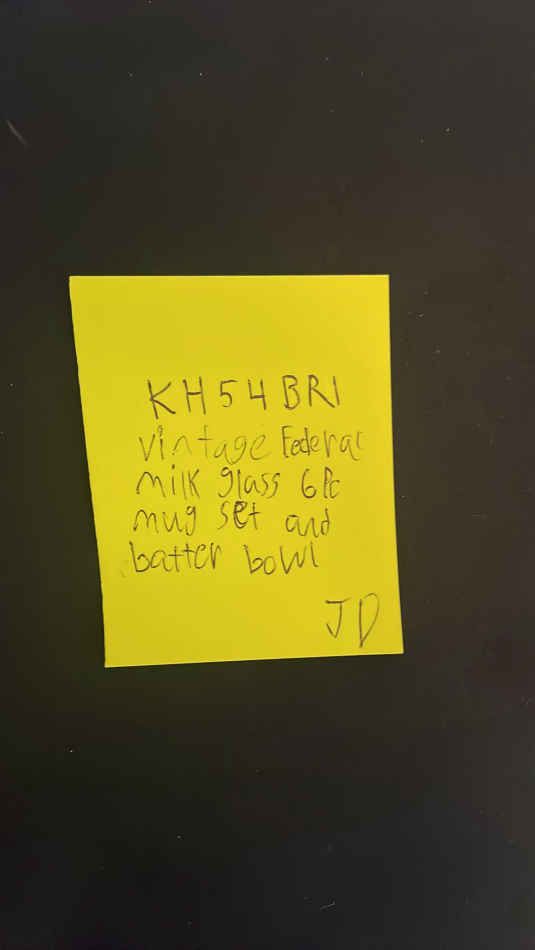 KH54BR1
vintage Federal
milk glass 6 Pc
mug set and
batter bowl
JD